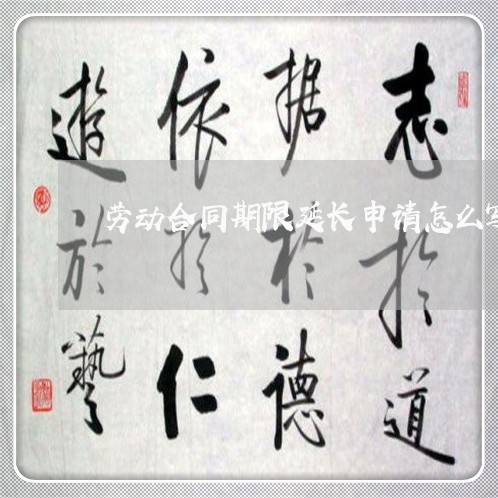 志於道
据於德
依於仁
遊於藝
劳动合同期限延长申请怎么